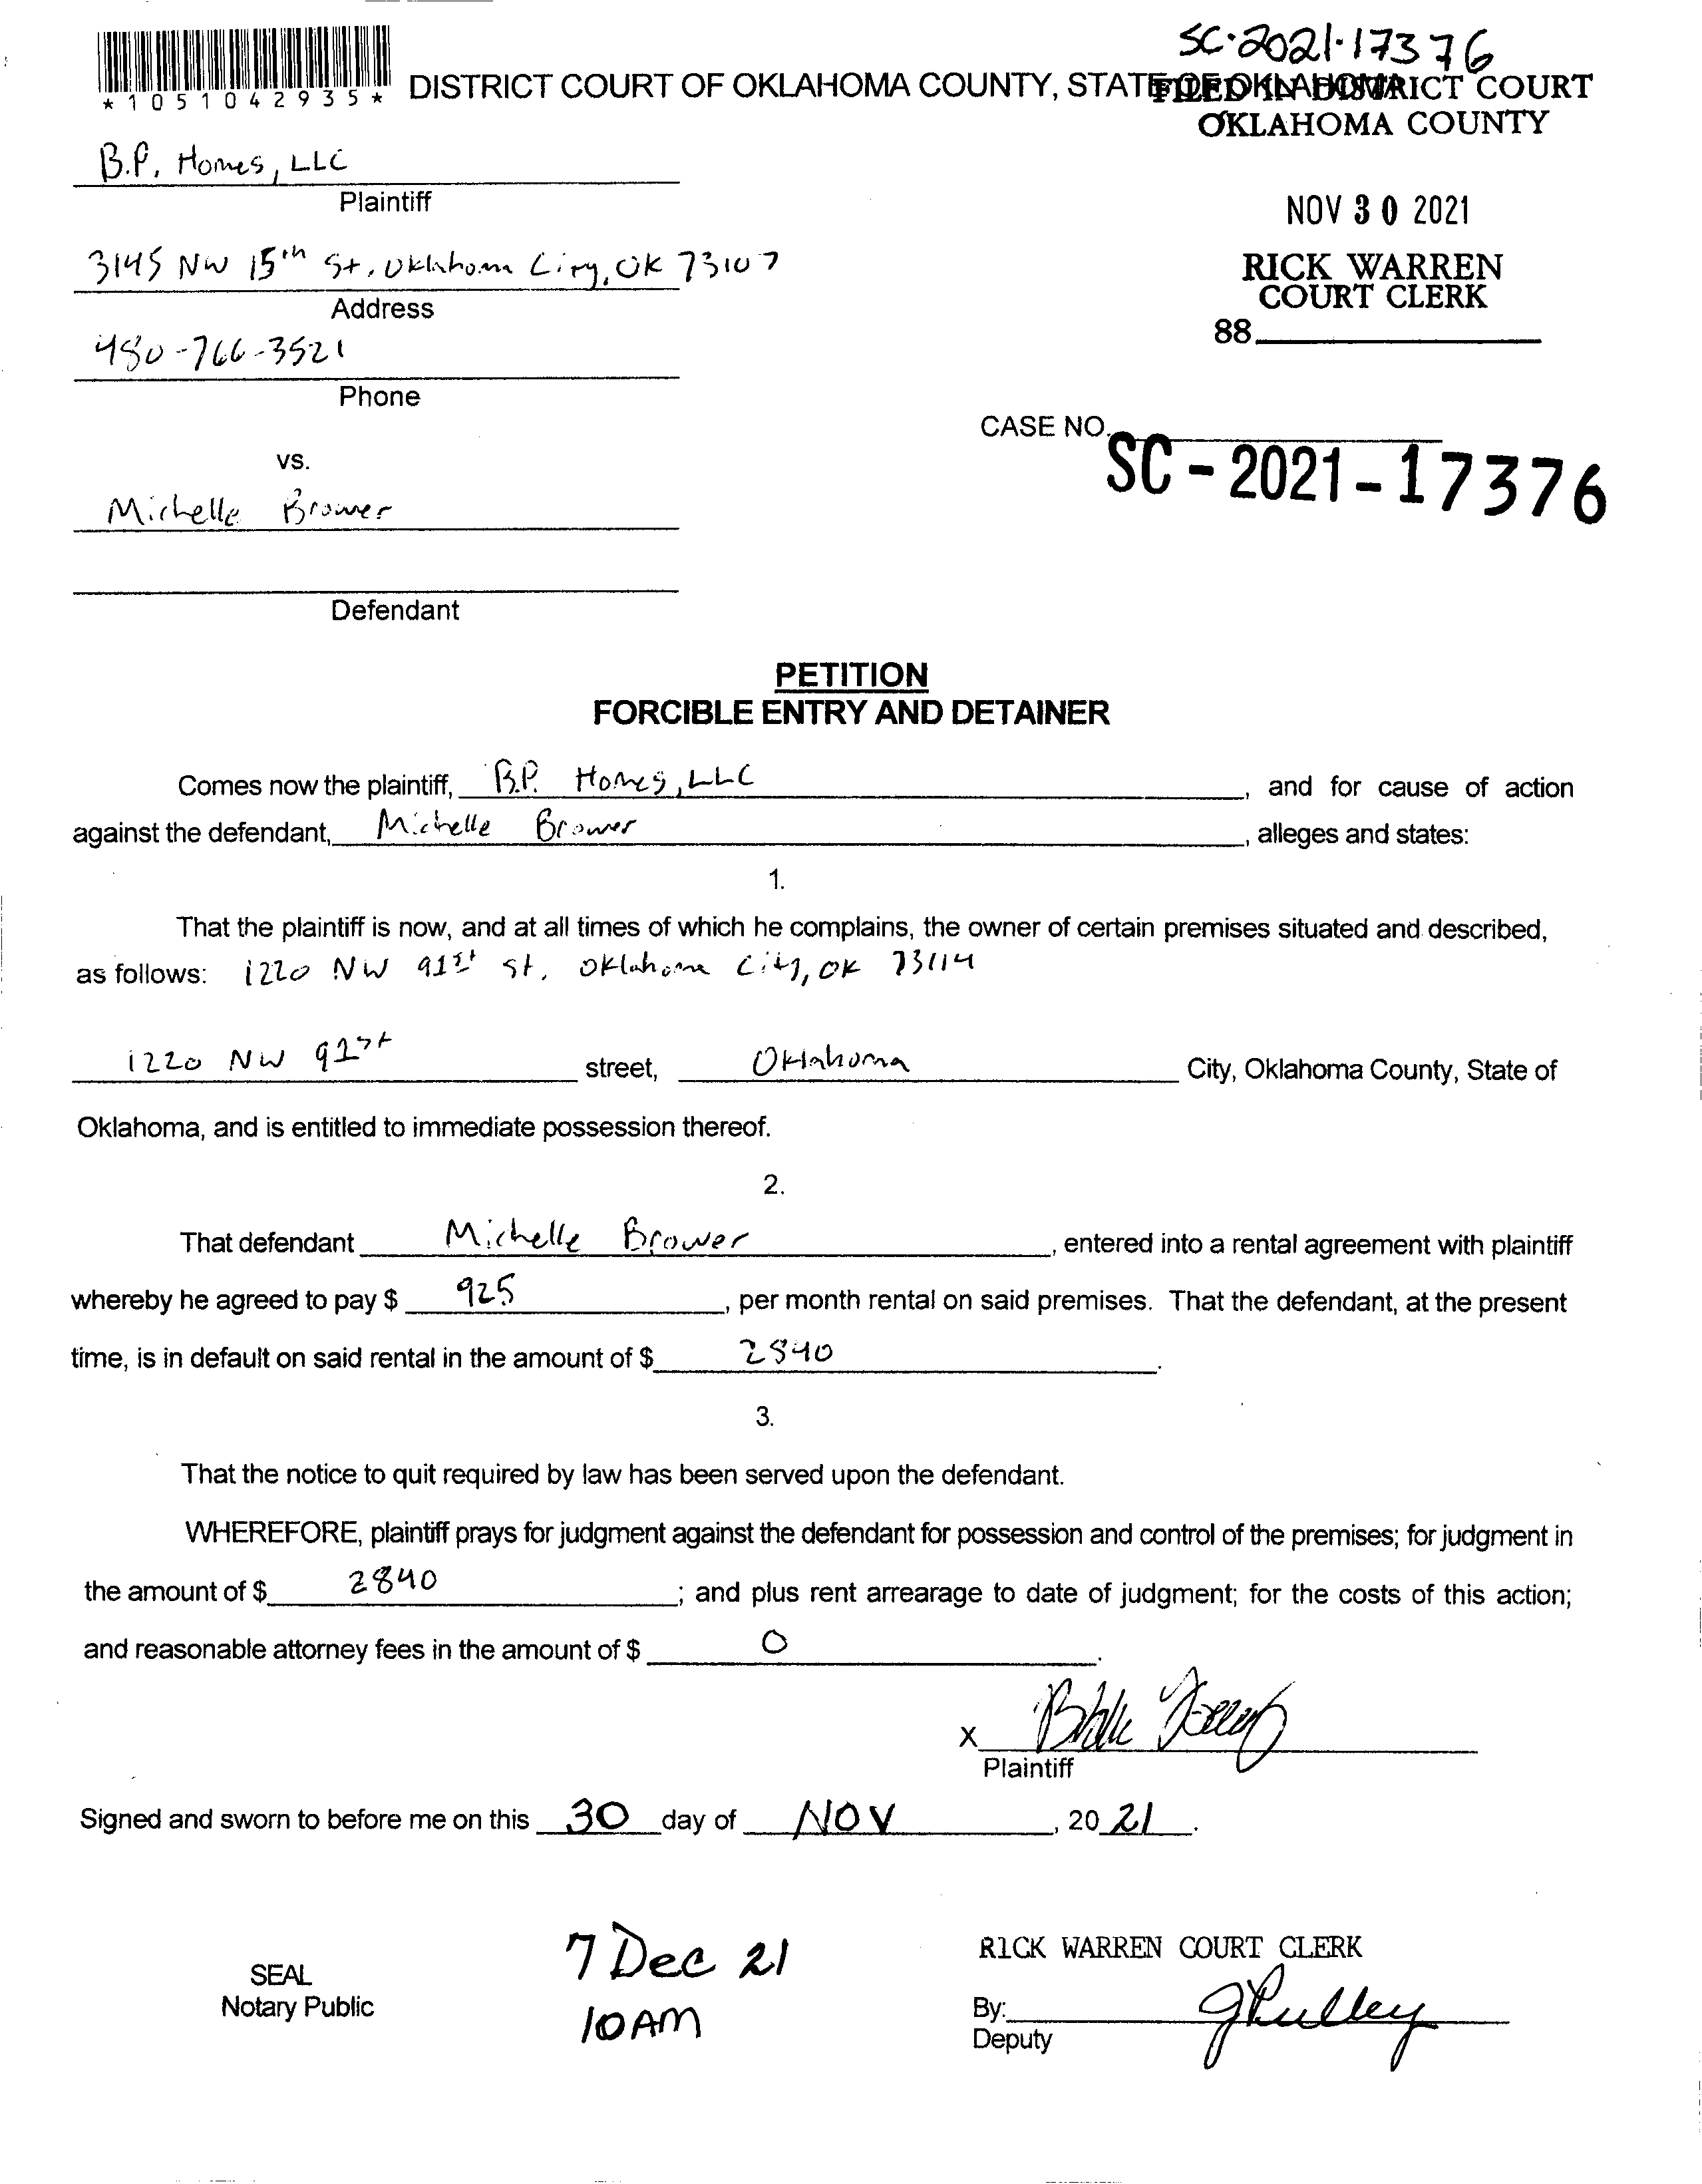 SC-2021-17376
*1051042935*
DISTRICT COURT OF OKLAHOMA COUNTY, STATE OF OKLAHOMA
FILED IN DISTRICT COURT
OKLAHOMA COUNTY
B.P. Homes, LLC
Plaintiff
NOV 30 2021
3145 NW 15th St, Oklahoma City, OK 73107
RICK WARREN
COURT CLERK
Address
88
480-766-3521
Phone
CASE NO.
SC-2021-17376
vs.
Michelle Brower
Defendant
PETITION
FORCIBLE ENTRY AND DETAINER
Comes now the plaintiff, B.P. Homes, LLC, and for cause of action
against the defendant, Michelle Brower, alleges and states:
1.
That the plaintiff is now, and at all times of which he complains, the owner of certain premises situated and described,
as follows: 1220 NW 91st St, Oklahoma City, OK 73114
1220 NW 91st street, Oklahoma City, Oklahoma County, State of
Oklahoma, and is entitled to immediate possession thereof.
2.
That defendant Michelle Brower, entered into a rental agreement with plaintiff
whereby he agreed to pay $ 925, per month rental on said premises. That the defendant, at the present
time, is in default on said rental in the amount of $ 2840.
3.
That the notice to quit required by law has been served upon the defendant.
WHEREFORE, plaintiff prays for judgment against the defendant for possession and control of the premises; for judgment in
the amount of $ 2840; and plus rent arrearage to date of judgment; for the costs of this action;
and reasonable attorney fees in the amount of $ 0.
X
Plaintiff
Signed and sworn to before me on this 30 day of NOV, 2021.
7 Dec 21
10AM
SEAL
Notary Public
RICK WARREN COURT CLERK
By: JPulley
Deputy